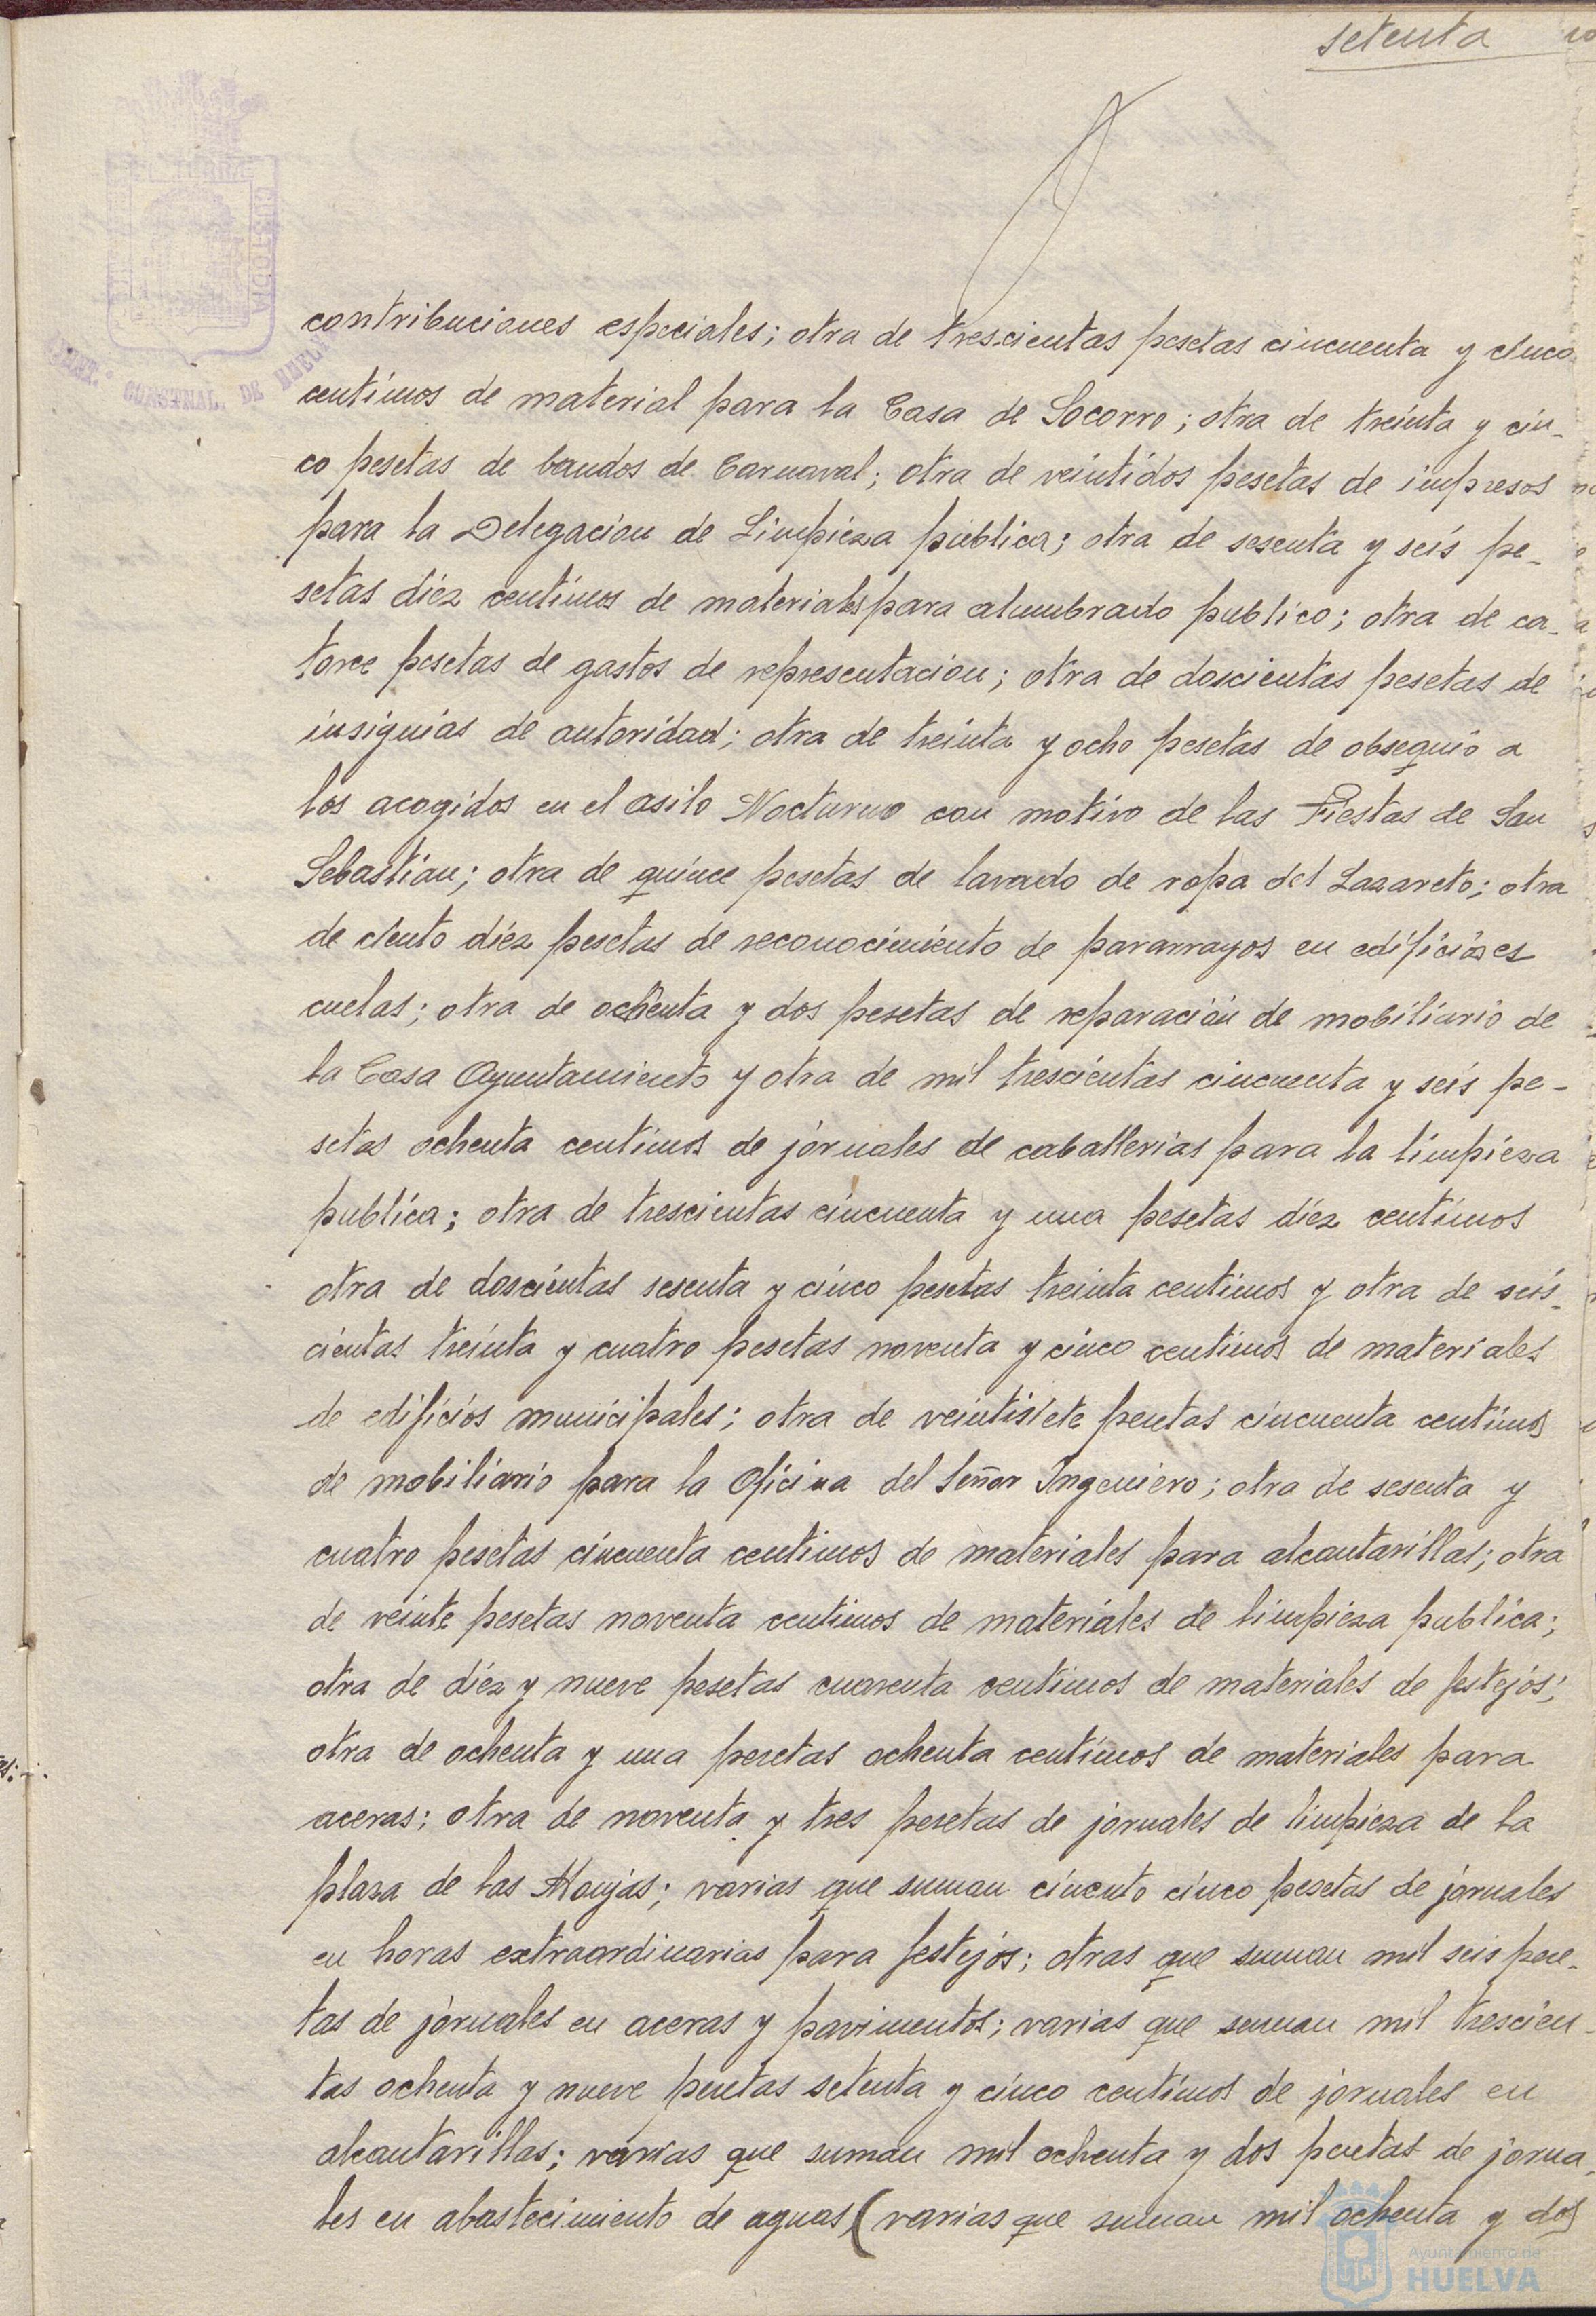 setenta
contribuciones especiales; otra de trescientas pesetas cincuenta y cinco
centimos de material para la Casa de Socorro; otra de treinta y cin-
co pesetas de bandos de Carnaval; otra de veintidos pesetas de impresos
para la Delegacion de Limpieza pública; otra de sesenta y seis pe-
setas diez centimos de materiales para alumbrado publico; otra de ca-
torce pesetas de gastos de representacion; otra de doscientas pesetas de
insignias de autoridad; otra de treinta y ocho pesetas de obsequio a
los acogidos en el asilo Nocturno con motivo de las Fiestas de San
Sebastian; otra de quince pesetas de lavado de ropa del Lazareto; otra
de ciento diez pesetas de reconocimiento de pararrayos en edificios es
cuelas; otra de ochenta y dos pesetas de reparación de mobiliario de
la Casa Ayuntamiento y otra de mil trescientas cincuenta y seis pe-
setas ochenta centimos de jornales de caballerias para la limpieza
publica; otra de trescientas cincuenta y una pesetas diez centimos
otra de doscientas sesenta y cinco pesetas treinta centimos y otra de seis-
cientas treinta y cuatro pesetas noventa y cinco centimos de materiales
de edificios municipales; otra de veintisiete pesetas cincuenta centimos
de mobiliario para la Oficina del Señor Ingeniero; otra de sesenta y
cuatro pesetas cincuenta centimos de materiales para alcantarillas; otra
de veinte pesetas noventa centimos de materiales de limpieza publica;
otra de diez y nueve pesetas cuarenta centimos de materiales de festejos;
otra de ochenta y una pesetas ochenta centimos de materiales para
aceras; otra de noventa y tres pesetas de jornales de limpieza de la
plaza de las Monjas; varias que suman cincuento cinco pesetas de jornales
en horas extraordinarias para festejos; otras que suman mil seis pese-
tas de jornales en aceras y pavimentos; varias que suman mil trescien-
tas ochenta y nueve pesetas setenta y cinco centimos de jornales en
alcantarillas; varias que suman mil ochenta y dos pesetas de jorna
les en abastecimiento de aguas (varias que suman mil ochenta y dos
CUSTODIA
CONSTNAL. DE HUELVA
Ayuntamiento de
HUELVA